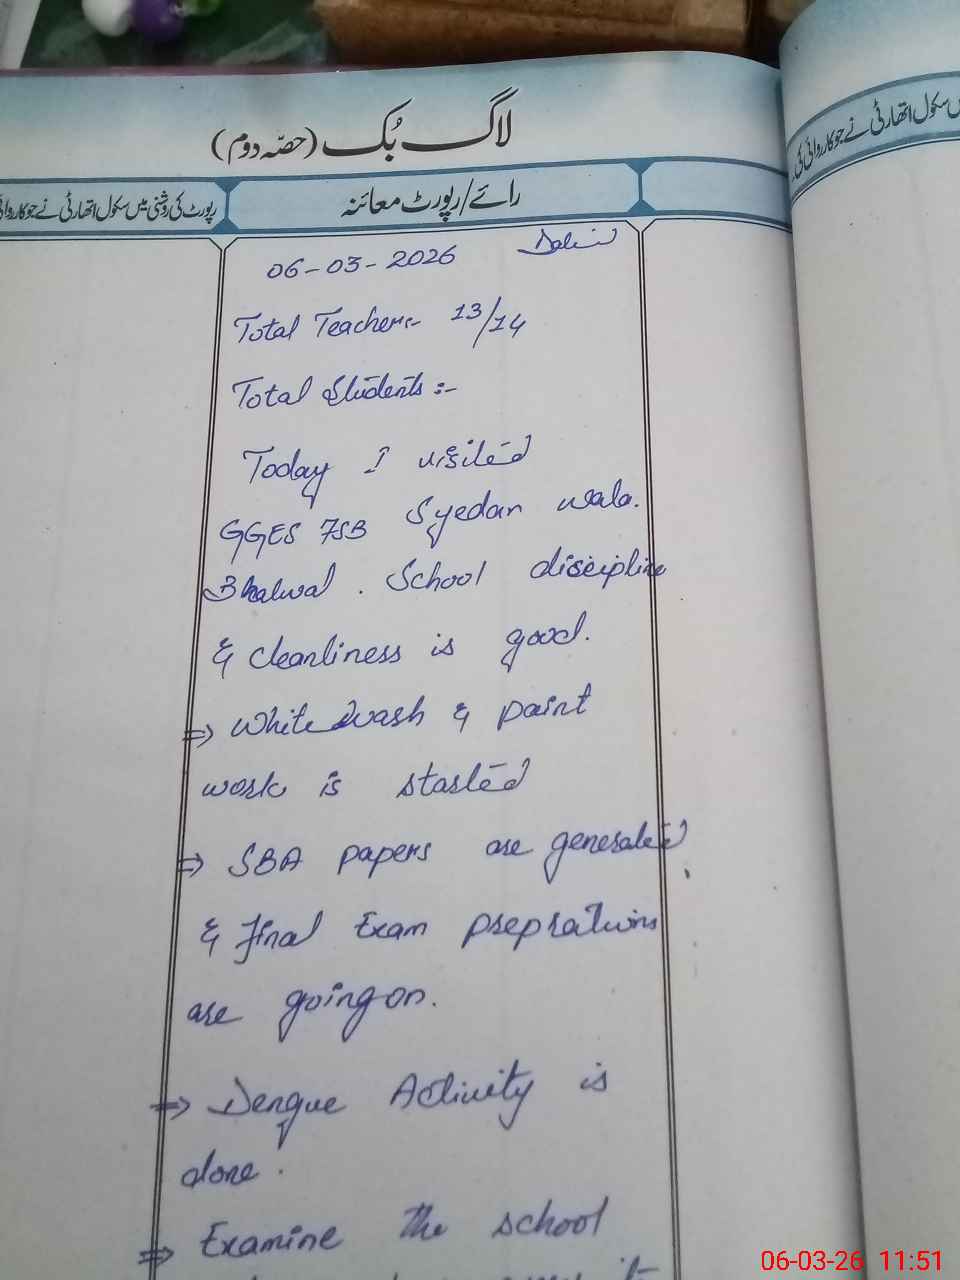 لاگ بُک (حصّہ دوم)
رائے/رپورٹ معائنہ
رپورٹ کی روشنی میں سکول اتھارٹی نے جو کاروائی
سکول اتھارٹی نے جو کاروائی کی
06-03-2026
Total Teachers:- 13/14
Total Students:-
Today I visited
GGES 7SB Syedan wala.
Bhalwal . School discipline
& cleanliness is good.
⇒ White wash & paint
work is started
⇒ SBA papers are generated
& final Exam preprations
are going on.
⇒ Dengue Activity is
done.
⇒ Examine the school
06-03-26 11:51